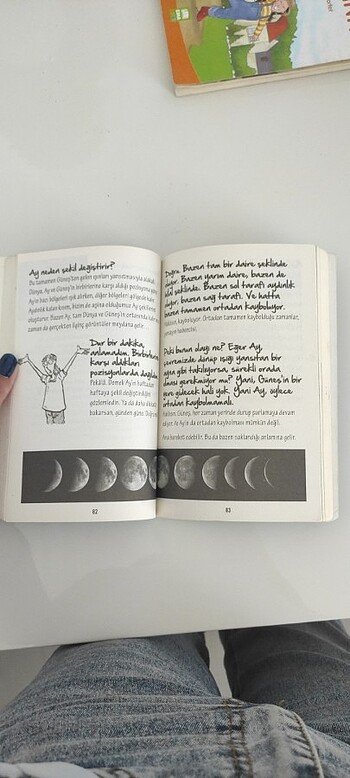 Ay neden şekil değiştirir?
Bu tamamen Güneş'ten gelen ışınları yansıtmasıyla alakalı.
Dünya, Ay ve Güneş'in birbirlerine karşı aldığı pozisyona göre,
Ay'ın bazı bölgeleri ışık alırken, diğer bölgeleri gölgede kalır.
Aydınlık kalan kısım, bizim de aşina olduğumuz Ay şekillerini
oluşturur. Bazen Ay, tam Dünya ve Güneş'in ortasında kalır
zaman da gerçekten ilginç görüntüler meydana gelir.
Dur bir dakika,
anlamadım. Birbirlerine
karşı aldıkları
pozisyonlarla
Şekliyle. Demek Ay'ın haftadan
haftaya şekil değiştirdiğini
gözlemledin. Ya da daha dikkatli
bakarsan, günden güne.
82
Doğru. Bazen tam bir daire şeklinde
oluyor. Bazen yarım daire, bazen de
hilal şeklinde. Bazen sol tarafı aydınlık
oluyor, bazen sağ tarafı. Ve hatta
bazen tamamen ortadan kayboluyor.
kayboluyor. Ortadan tamamen kaybolduğu zamanlar,
Peki bunun olayı ne? Eğer Ay,
çevremizde dönüp ışığı yansıtan bir
ayna gibi takılıyorsa, sürekli orada
olması gerekmiyor mu? Yani, Güneş'in bir
yere gidecek hali yok. Yani Ay, öylece
ortadan kaybolmamalı.
Güneş, her zaman yerinde durup parlamaya devam
ediyor. Ve Ay'ın da ortadan kaybolması mümkün değil.
Ama hareket edebilir. Bu da bazen saklandığı anlamına gelir.
83